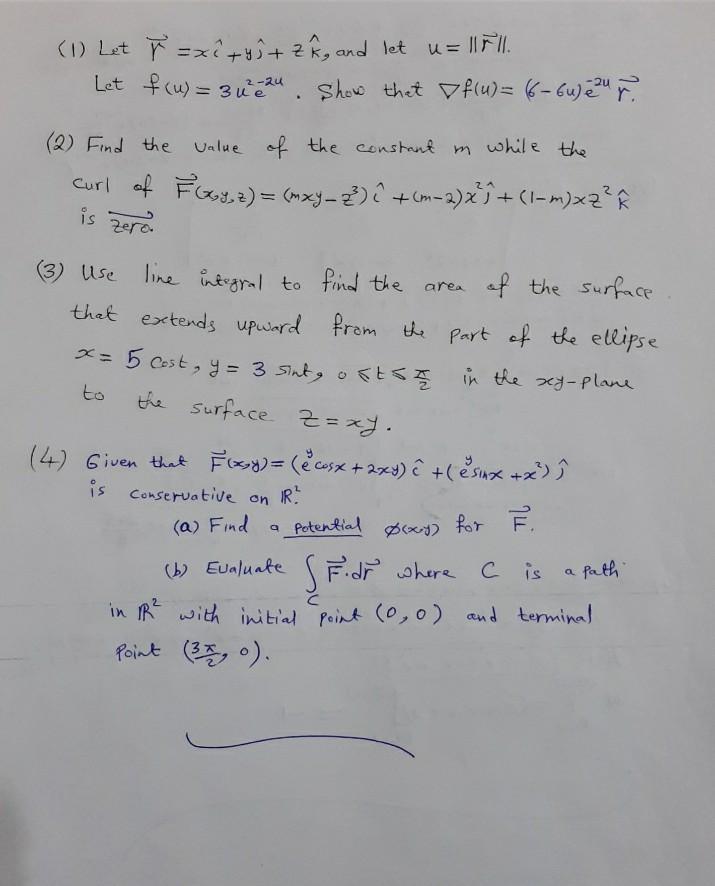 (1) Let r⃗ = xî + yĵ + zk̂, and let u = ||r⃗||.
Let f(u) = 3u²e⁻²ᵘ. Show that ∇f(u) = (6-6u)e⁻²ᵘ r⃗.
(2) Find the value of the constant m while the
curl of F⃗(x,y,z) = (mxy - z³)î + (m-2)x²ĵ + (1-m)xz² k̂
is zero.
(3) Use line integral to find the area of the surface
that extends upward from the part of the ellipse
x = 5 cost, y = 3 sint, 0 ≤ t ≤ π/2 in the xy-plane
to the surface z = xy.
(4) Given that F⃗(x,y) = (eʸcosx + 2xy) î + (eʸsinx + x²) ĵ
is conservative on ℝ².
(a) Find a potential ø(x,y) for F⃗.
(b) Evaluate ∫_C F⃗·dr⃗ where C is a path
in ℝ² with initial point (0,0) and terminal
point (3π/2, 0).